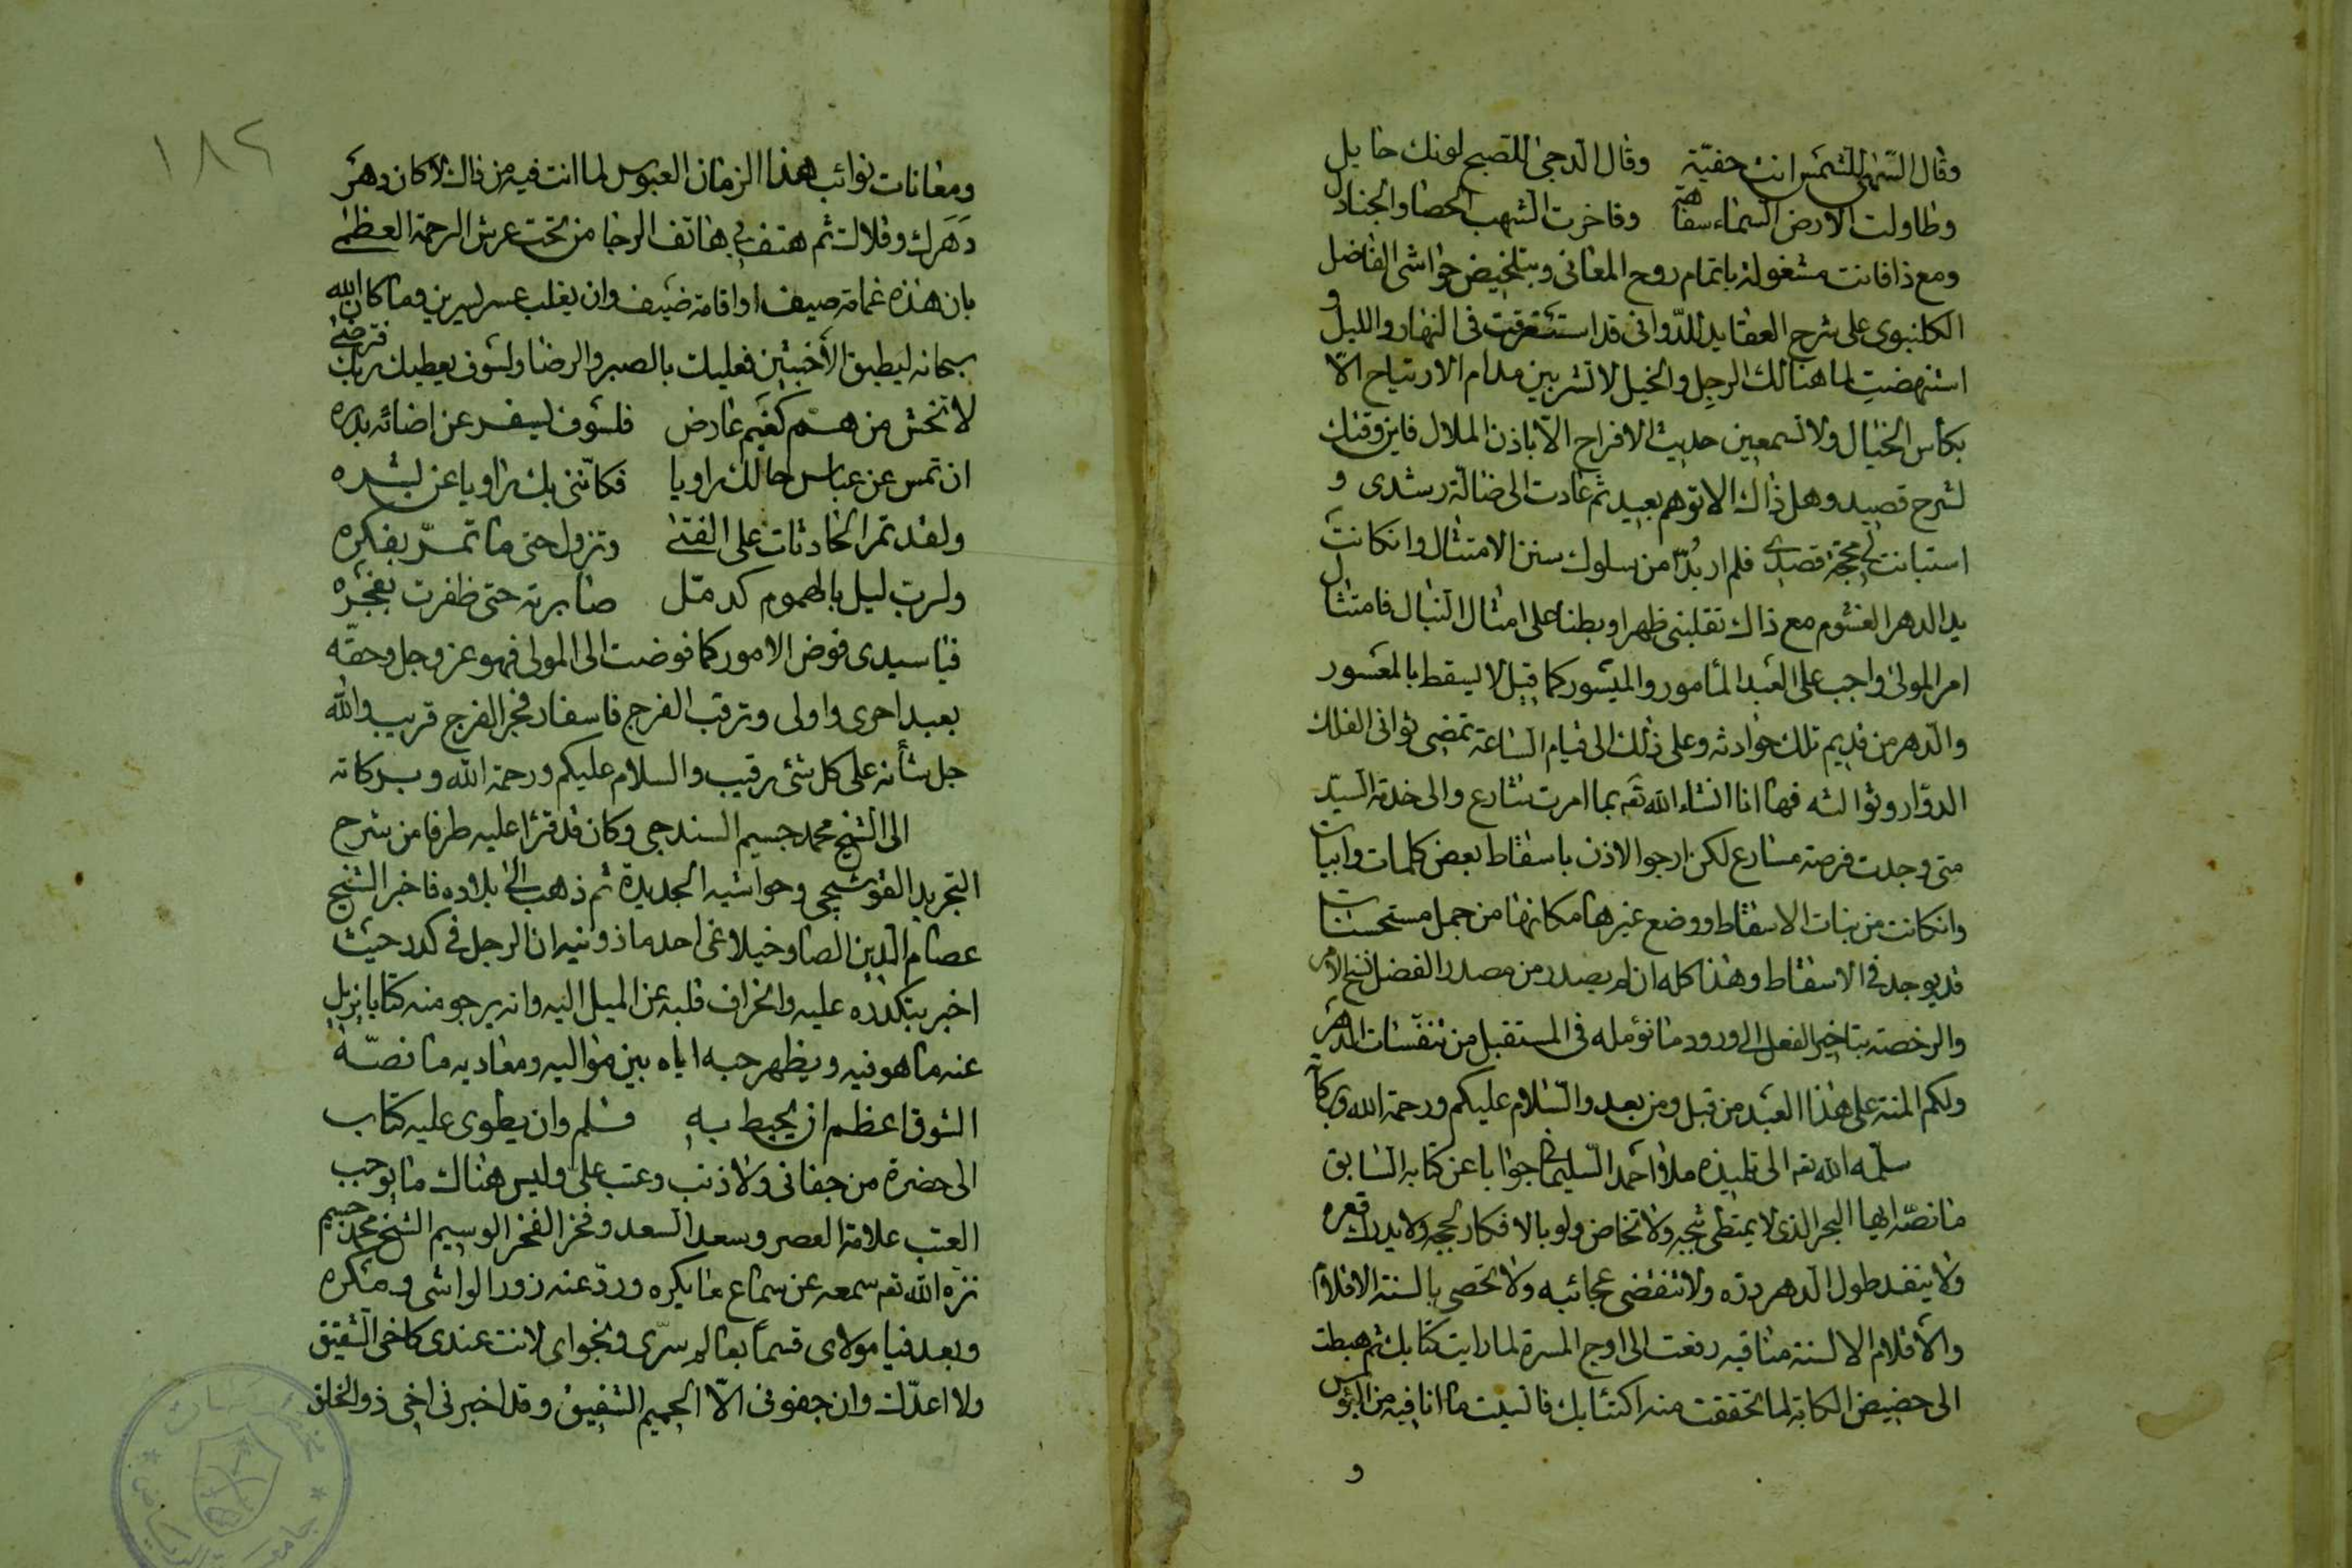 وقال السهى للشمس انت خفيّة وقال الدجى للصبح لونك حايل
وطاولت الارض السماء سفاهة وفاخرت الشهب الحصا والجنادل
ومع ذا فانت مشغولة باتمام روح المعانى وبتلخيص حواشى الفاضل
الكلنبوى على شرح العقايد للدّوانى قد استغرقت فى النهار والليل و
استنهضت لما هنالك الرجل والخيل لا تشربين مدام الارتياح الّا
بكأس الخيال ولا تسمعين حديث الافراح الّا باذن الملال فاين وقتك
لشرح قصيد وهل ذاك الا توهم بعيد ثم عادت الى ضالة رشدى و
استبانت لى محجة قصدى فلم ار بُدّا من سلوك سنن الامتثال وانكانت
يد الدهر الغشوم مع ذاك تقلبنى ظهرا وبطنا على امثال النبال فامتثال
امر المولى واجب على العبد المأمور والميسور كما قيل لا يسقط بالمعسور
والدهر من قديم تلك حوادثه وعلى ذلك الى قيام الساعة تمضى ثوانى الفلك
الدوّار وثوالثه فها انا انشاء الله تعم بما امرت شارع والى خدمة السيّد
متى وجدت فرصة مسارع لكن ارجو الاذن باسقاط بعض كلمات وابيات
وانكانت من بنات الاسقاط ووضع غيرها مكانها من جمل مستحسنات
قد يوجد فى الاسقاط وهذا كله ان لم يصدر من مصدر الفضل نسخ الامر
والرخصة بتاخير الفعل الى ورود ما نؤمله فى المستقبل من تنفسات الدهر
ولكم المنة على هذا العبد من قبل ومن بعد والسلام عليكم ورحمة الله وبركاته
سلّمه الله تعم الى تلميذه ملا احمد السليمانى جوابا عن كتابه السابق
ما نصّه ايها البحر الذى لا يمتطى ثبجه ولا تخاض ولو بالافكار لججه ولا يدرك قعره
ولا ينفد طول الدهر درّه ولا تنقضى عجائبه ولا تحصى بالسنة الاقلام
والاقلام الالسنة مناقبه رفعت الى اوج المسرة لما رايت كتابك ثم هبطت
الى حضيض الكابة لما تحققت منه اكتئابك فانسيت ما انا فيه من البؤس
و
١٨٢
ومعانات نوائب هذا الزمان العبوس لما انت فيه من ذاك لا كان دهر
دَهَرك وقلا لت ثم هتف بى هاتف الرجا من تحت عرش الرحمة العظمى
بان هذه غمامة صيف او اقامة ضيف وان يغلب عسر يسرين وما كان الله
سبحانه ليطبق الأخبثين فعليك بالصبر والرضا ولسوف يعطيك ربك فترضى
لا تخش من همّ كغيم عارض فلسوف يسفر عن اضائة بدره
ان تمس عن عباس حالك راويا فكأننى بك راويا عن بشره
ولقد تمر الحادثات على الفتى وتزول حتى ما تمرّ بفكره
ولربّ ليل بالهموم كدمّل صابرته حتى ظفرت بفجره
فيا سيدى فوض الامور كما فوضت الى المولى فهو عز وجل وحقّه
بعبد احرى واولى وترقب الفرج فاسفار فجر الفرج قريب والله
جل شأنه على كل شئ رقيب والسلام عليكم ورحمة الله وبركاته
الى الشيخ محمد جسيم السندجى وكان قد قرأ عليه طرفا من شرح
التجريد القوشجى وحواشيه الجديدة ثم ذهب الى بلاده فاخبر الشيخ
عصام الدين الصاوخيلاغى احد ماذونيه ان الرجل فى كدر حيث
اخبر بتكدره عليه وانحراف قلبه عن الميل اليه وانه يرجو منه كتابا يزيل
عنه ما هو فيه ويظهر حبه اياه بين مواليه ومعاديه ما نصّه
الشوق اعظم ان يحيط به قلم وان يطوى عليه كتاب
الى حضرة من جفانى ولا ذنب وعتب على وليس هناك ما يوجب
العتب علامة العصر وسعد السعد وفخر الفخر الوسيم الشيخ محمد جسيم
نزه الله تعم سمعه عن سماع ما يكره وردّ عنه زور الواشى ومكره
وبعد فيا مولاى قسماً بعالم سرّى ونجواى لانت عندى كاخى الشقيق
ولا اعدّك وان جفوتنى الّا الحميم الشفيق وقد اخبرنى اخى ذو الخلق